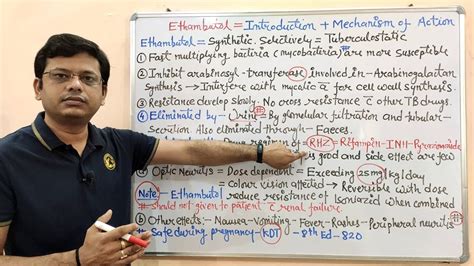 Ethambutol = Introduction + Mechanism of Action
Ethambutol = Synthetic. Selectively = Tuberculostatic
① Fast multiplying bacteria (mycobacteria) are more susceptible
② Inhibit arabinosyl-transferase involved in - Arabinogalactan
Synthesis → Interfere with mycolic a̅ for cell wall synthesis.
③ Resistance develop slowly. No cross resistance c̅ other TB drugs.
④ Eliminated by - Urine # = By glomerular filtration and tubular
secretion. Also eliminated through - Faeces.
= RHZ = Rifampin - INH - Pyrazinamide
is good and side effect are few
Optic Neuritis = Dose dependent = Exceeding 25 mg/kg/day
= Colour vision affected → Reversible with dose
Note: - Ethambutol reduce resistance of Isoniazid when combined
# should not given to patient c̅ renal failure.
⑥ Other effects:- Nausea - Vomiting - Fever - Rashes - Peripheral neuritis #
## Safe during pregnancy - KDT - 8th Ed - 820